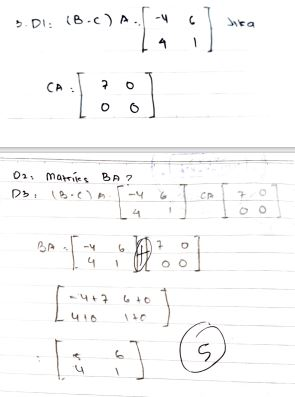 5. D1: (B-C) A = [ -4 6 Jika
4 1 ]
CA = [ 7 0
0 0 ]
D2: Matriks BA?
D3: (B-C) A [ -4 6 CA [ 7 0
4 1 ] 0 0 ]
BA = [ -4 6 + 7 0
4 1 ] [ 0 0 ]
[ -4+7 6+0
4+0 1+0 ]
: [ 6
4 1 ] 5